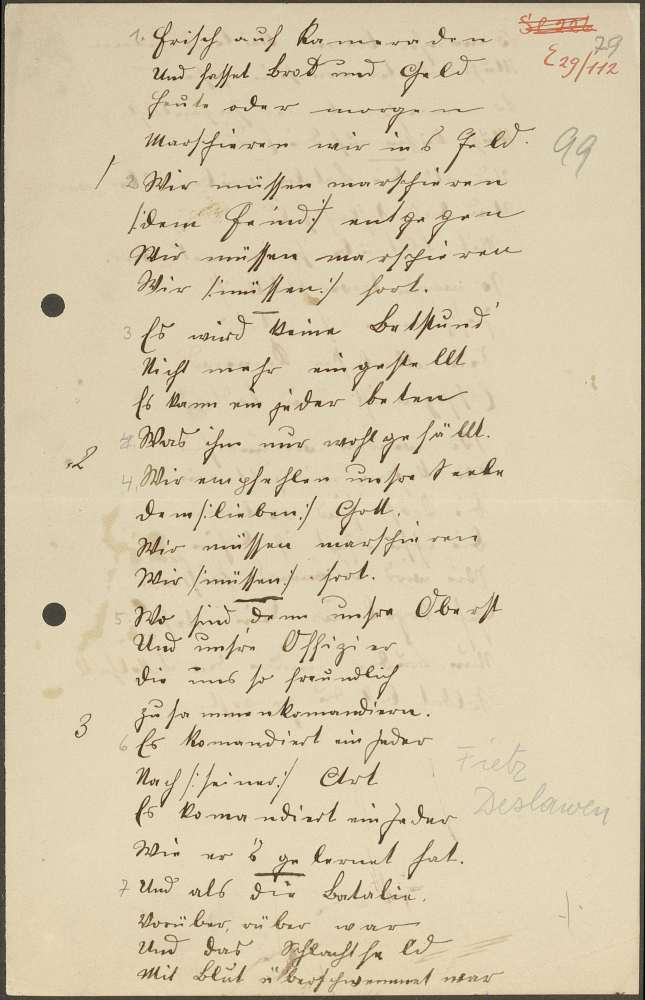 1. Frisch auf Kameraden
Und fasset Brod und Geld
Heute oder morgen
Marschieren wir in's Feld.
2 Wir müssen marschieren
/:dem Feind:/ entgegen
Wir müssen marschieren
Wir /:müssen:/ fort.
3 Es wird keine Betstund'
Nicht mehr eingestellt
Es kann ein jeder beten
Was ihm nur wohlgefällt.
4, Wir empfehlen unsre Seele
dem /:lieben:/ Gott.
Wir müssen marschieren
Wir /:müssen:/ fort.
5 Wo sind denn unsre Oberst
Und unsre Offizier
Die uns so freundlich
zusammenkomandiern.
6 Es komandiert ein Jeder
Nach /:seiner:/ Art
Es komandiert ein Jeder
Wie er's gelernet hat.
7 Und als die Batalie,
Vorüber, rüber war
Und das Schlachtfeld
Mit Blut überschwemmet war
79
E 29/112
99
1
2
3
Fietz
Deslawen